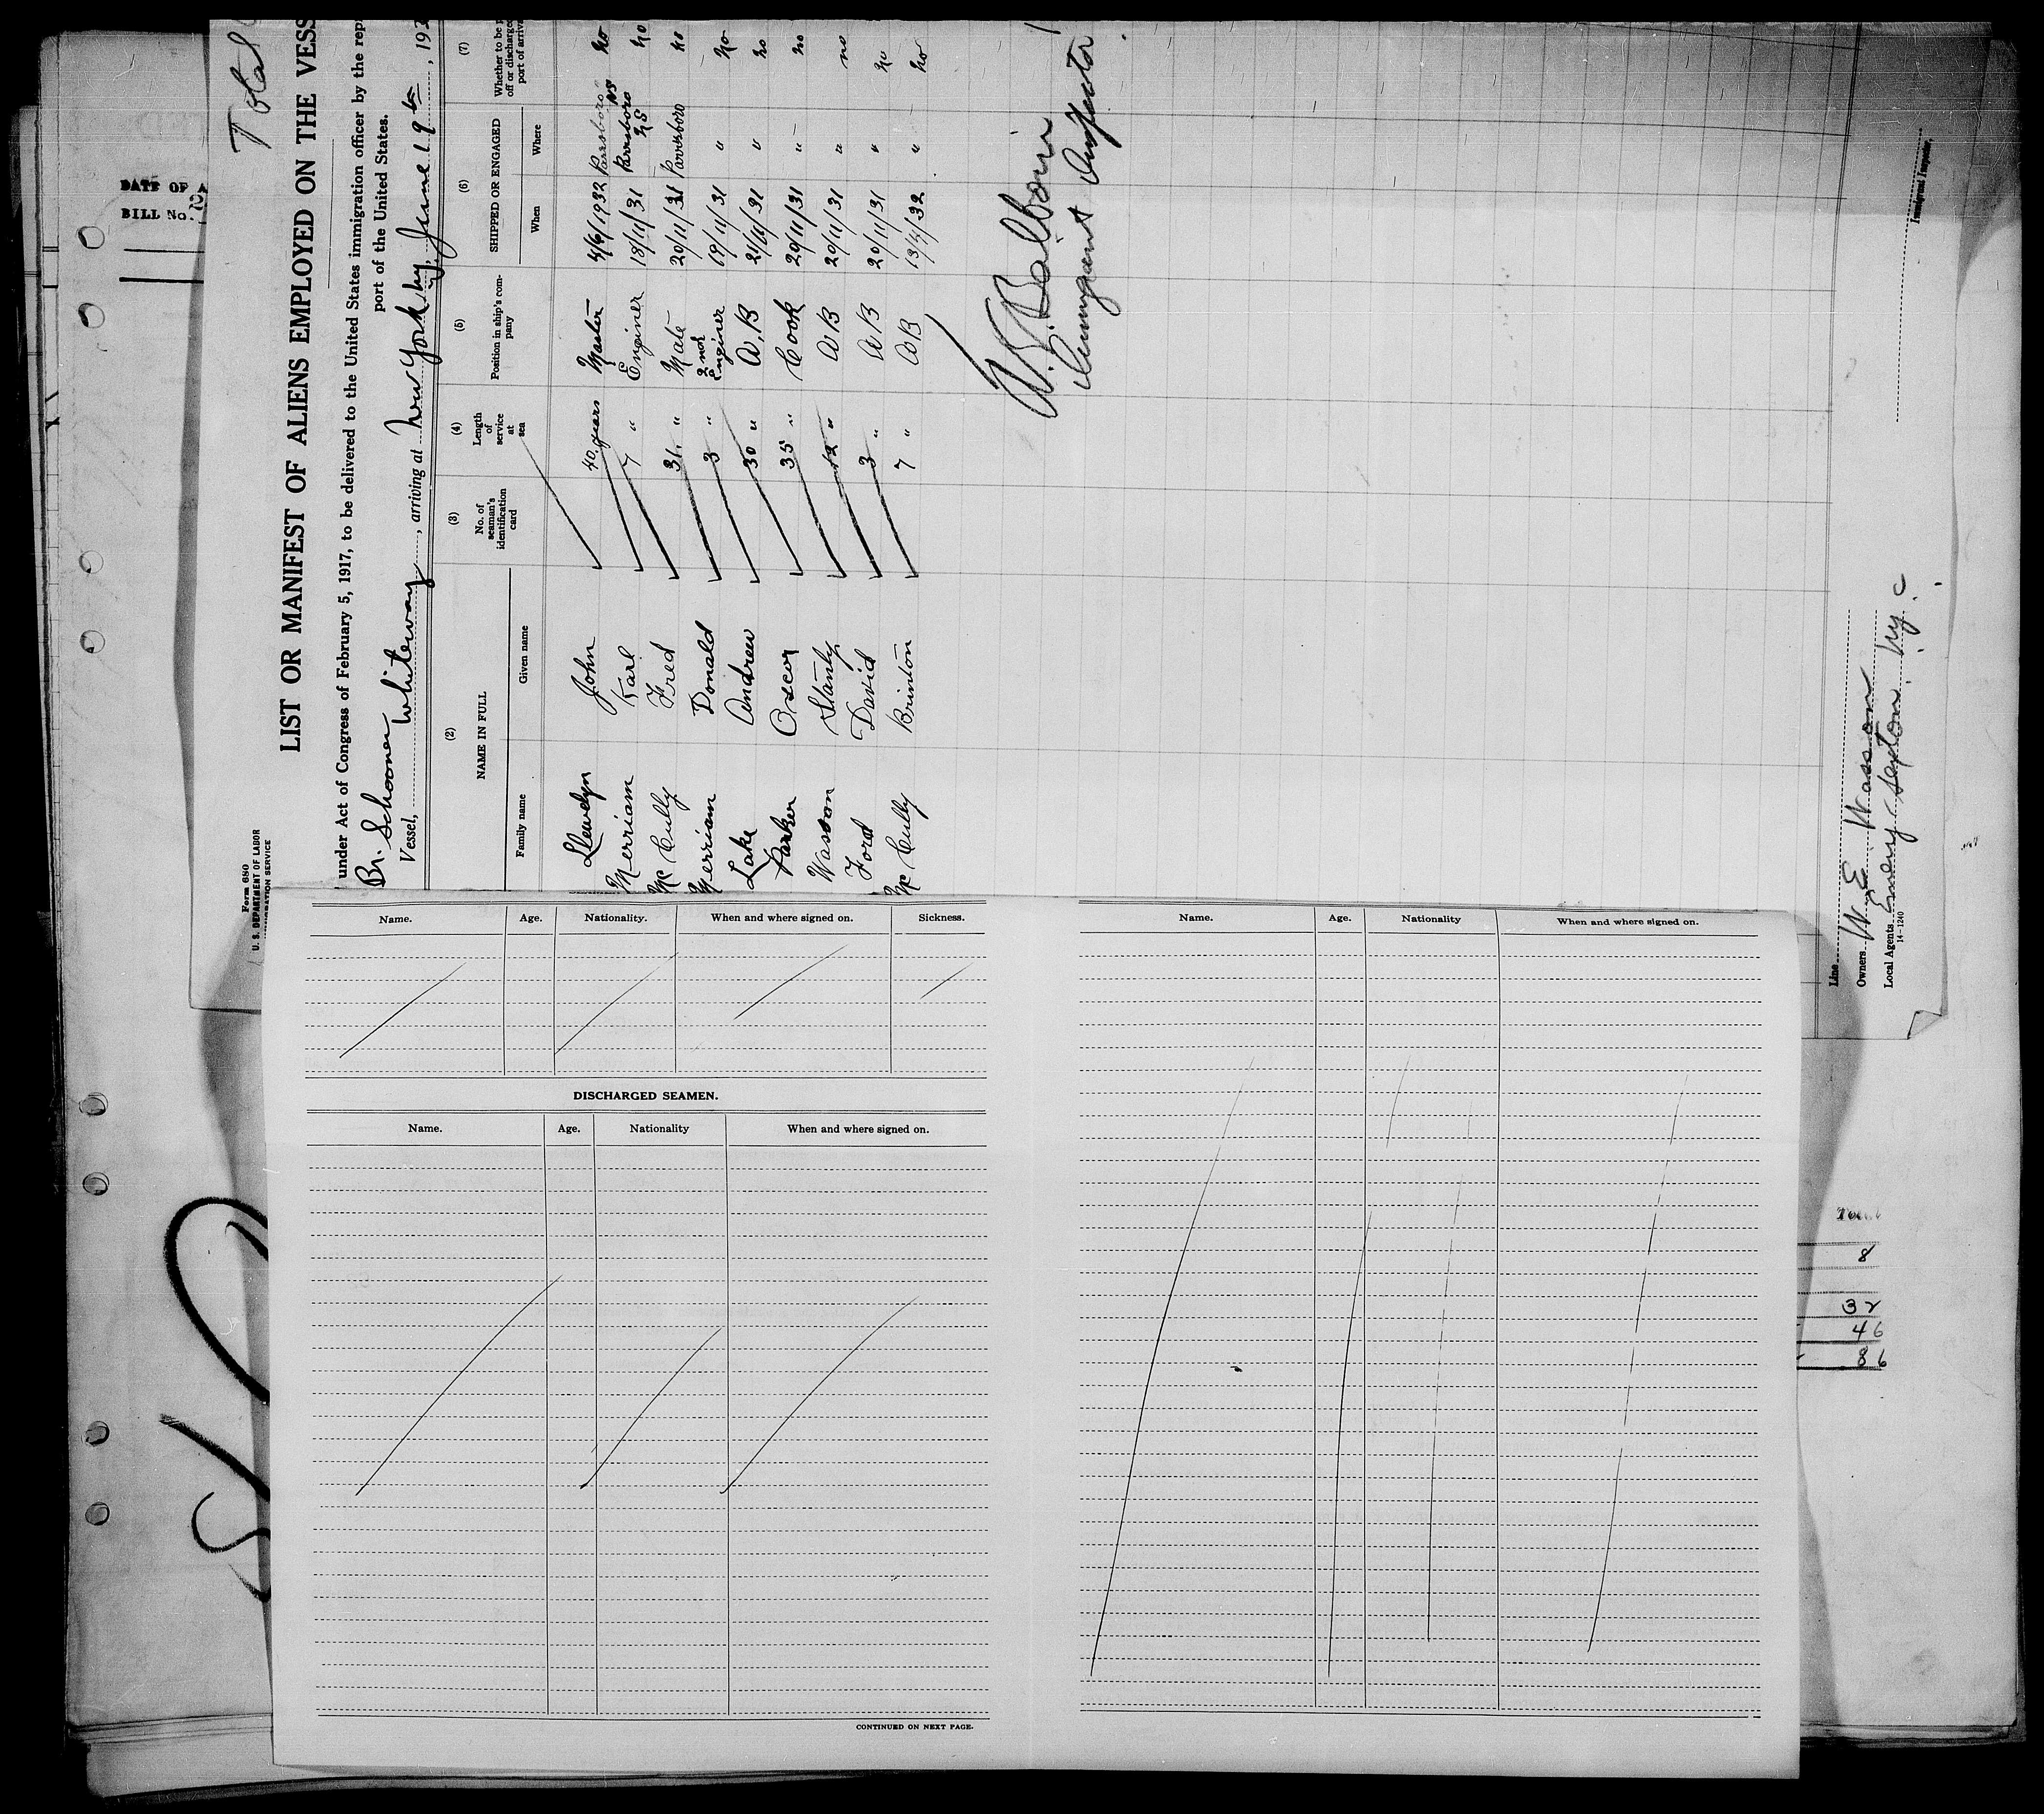 DATE OF A
BILL No.
Total
Form 680
U. S. DEPARTMENT OF LABOR
IMMIGRATION SERVICE
LIST OR MANIFEST OF ALIENS EMPLOYED ON THE VESS
under Act of Congress of February 5, 1917, to be delivered to the United States immigration officer by the rep
port of the United States.
Br. Schooner Whiteway
Vessel, , arriving at New York Ny, June 19th, 193
(2) (3) (4) (5) (6) (7)
NAME IN FULL No. of seaman's identification card Length of service at sea Position in ship's company SHIPPED OR ENGAGED Whether to be p
off or discharged
port of arriva
Family name Given name When Where
Llewelyn John 40 years Master 4/6/1932 Parrsboro NS no
Merriam Karl 7 " Enginer 18/11/31 Parrsboro NS no
Mc Cully Fred 31 " Mate 20/11/31 Parrsboro no
Merriam Donald 3 " 2nd Enginer 19/11/31 " no
Lake Andrew 30 " A.B 21/11/31 " no
Parker Oscor 35 " Cook 20/11/31 " no
Wasson Stanly 12 " AB 20/11/31 " no
Ford David 3 " AB 20/11/31 " no
Mc Cully Brinton 7 " AB 13/4/32 " no
Immigrant Inspector
Immigrant Inspector.
Line
Owners W. E Wasson
Local Agents Sexton Ny. C
14-1240
Name. Age. Nationality. When and where signed on. Sickness.
DISCHARGED SEAMEN.
Name. Age. Nationality When and where signed on.
CONTINUED ON NEXT PAGE.
Name. Age. Nationality When and where signed on.
Total
8
32
46
86